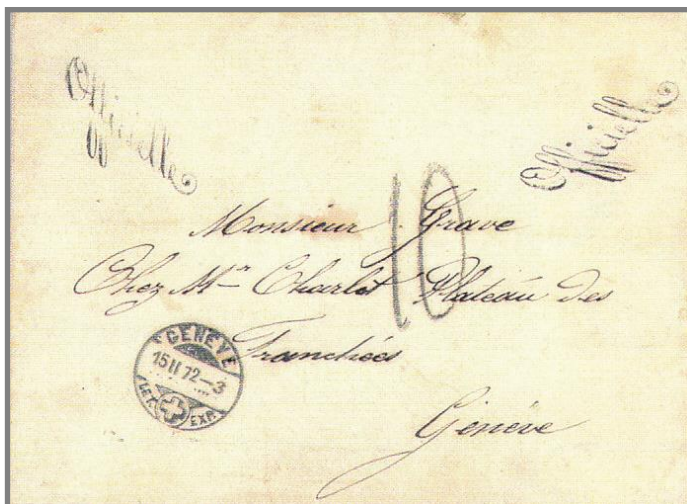 Officielle
Officielle
10
Monsieur Grave
Chez Mr Charlet Plateau des
Tranchées
Genève
GENÈVE
15 II 72–3
LET. EXP.